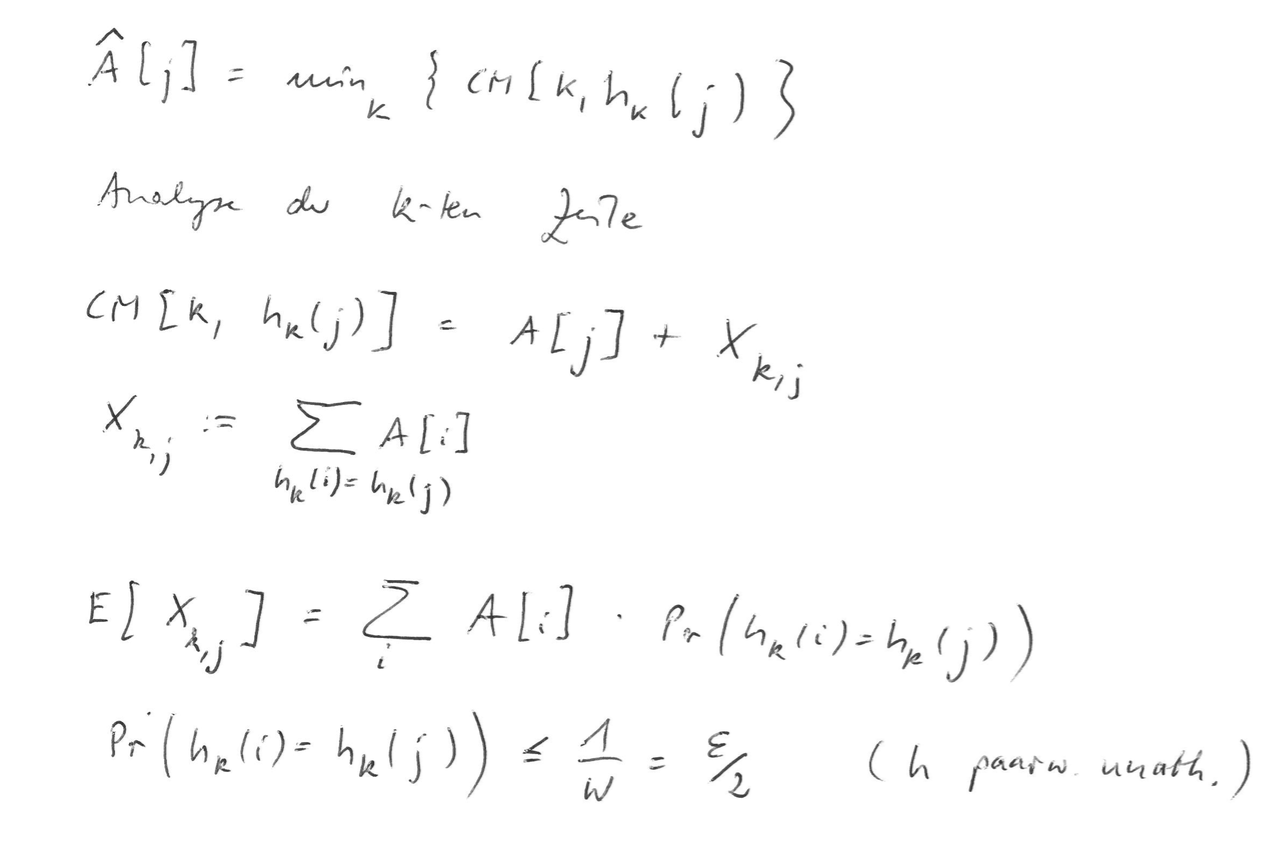 Â[j] = min_k { CM[k, h_k(j) }
Analyse der k-ten Zeile
CM[k, h_k(j)] = A[j] + X_{k,j}
X_{k,j} := ∑_{h_k(i)=h_k(j)} A[i]
E[X_{k,j}] = ∑_i A[i] · Pr(h_k(i)=h_k(j))
Pr(h_k(i)=h_k(j)) ≤ 1/w = ε/2 (h paarw. unabh.)